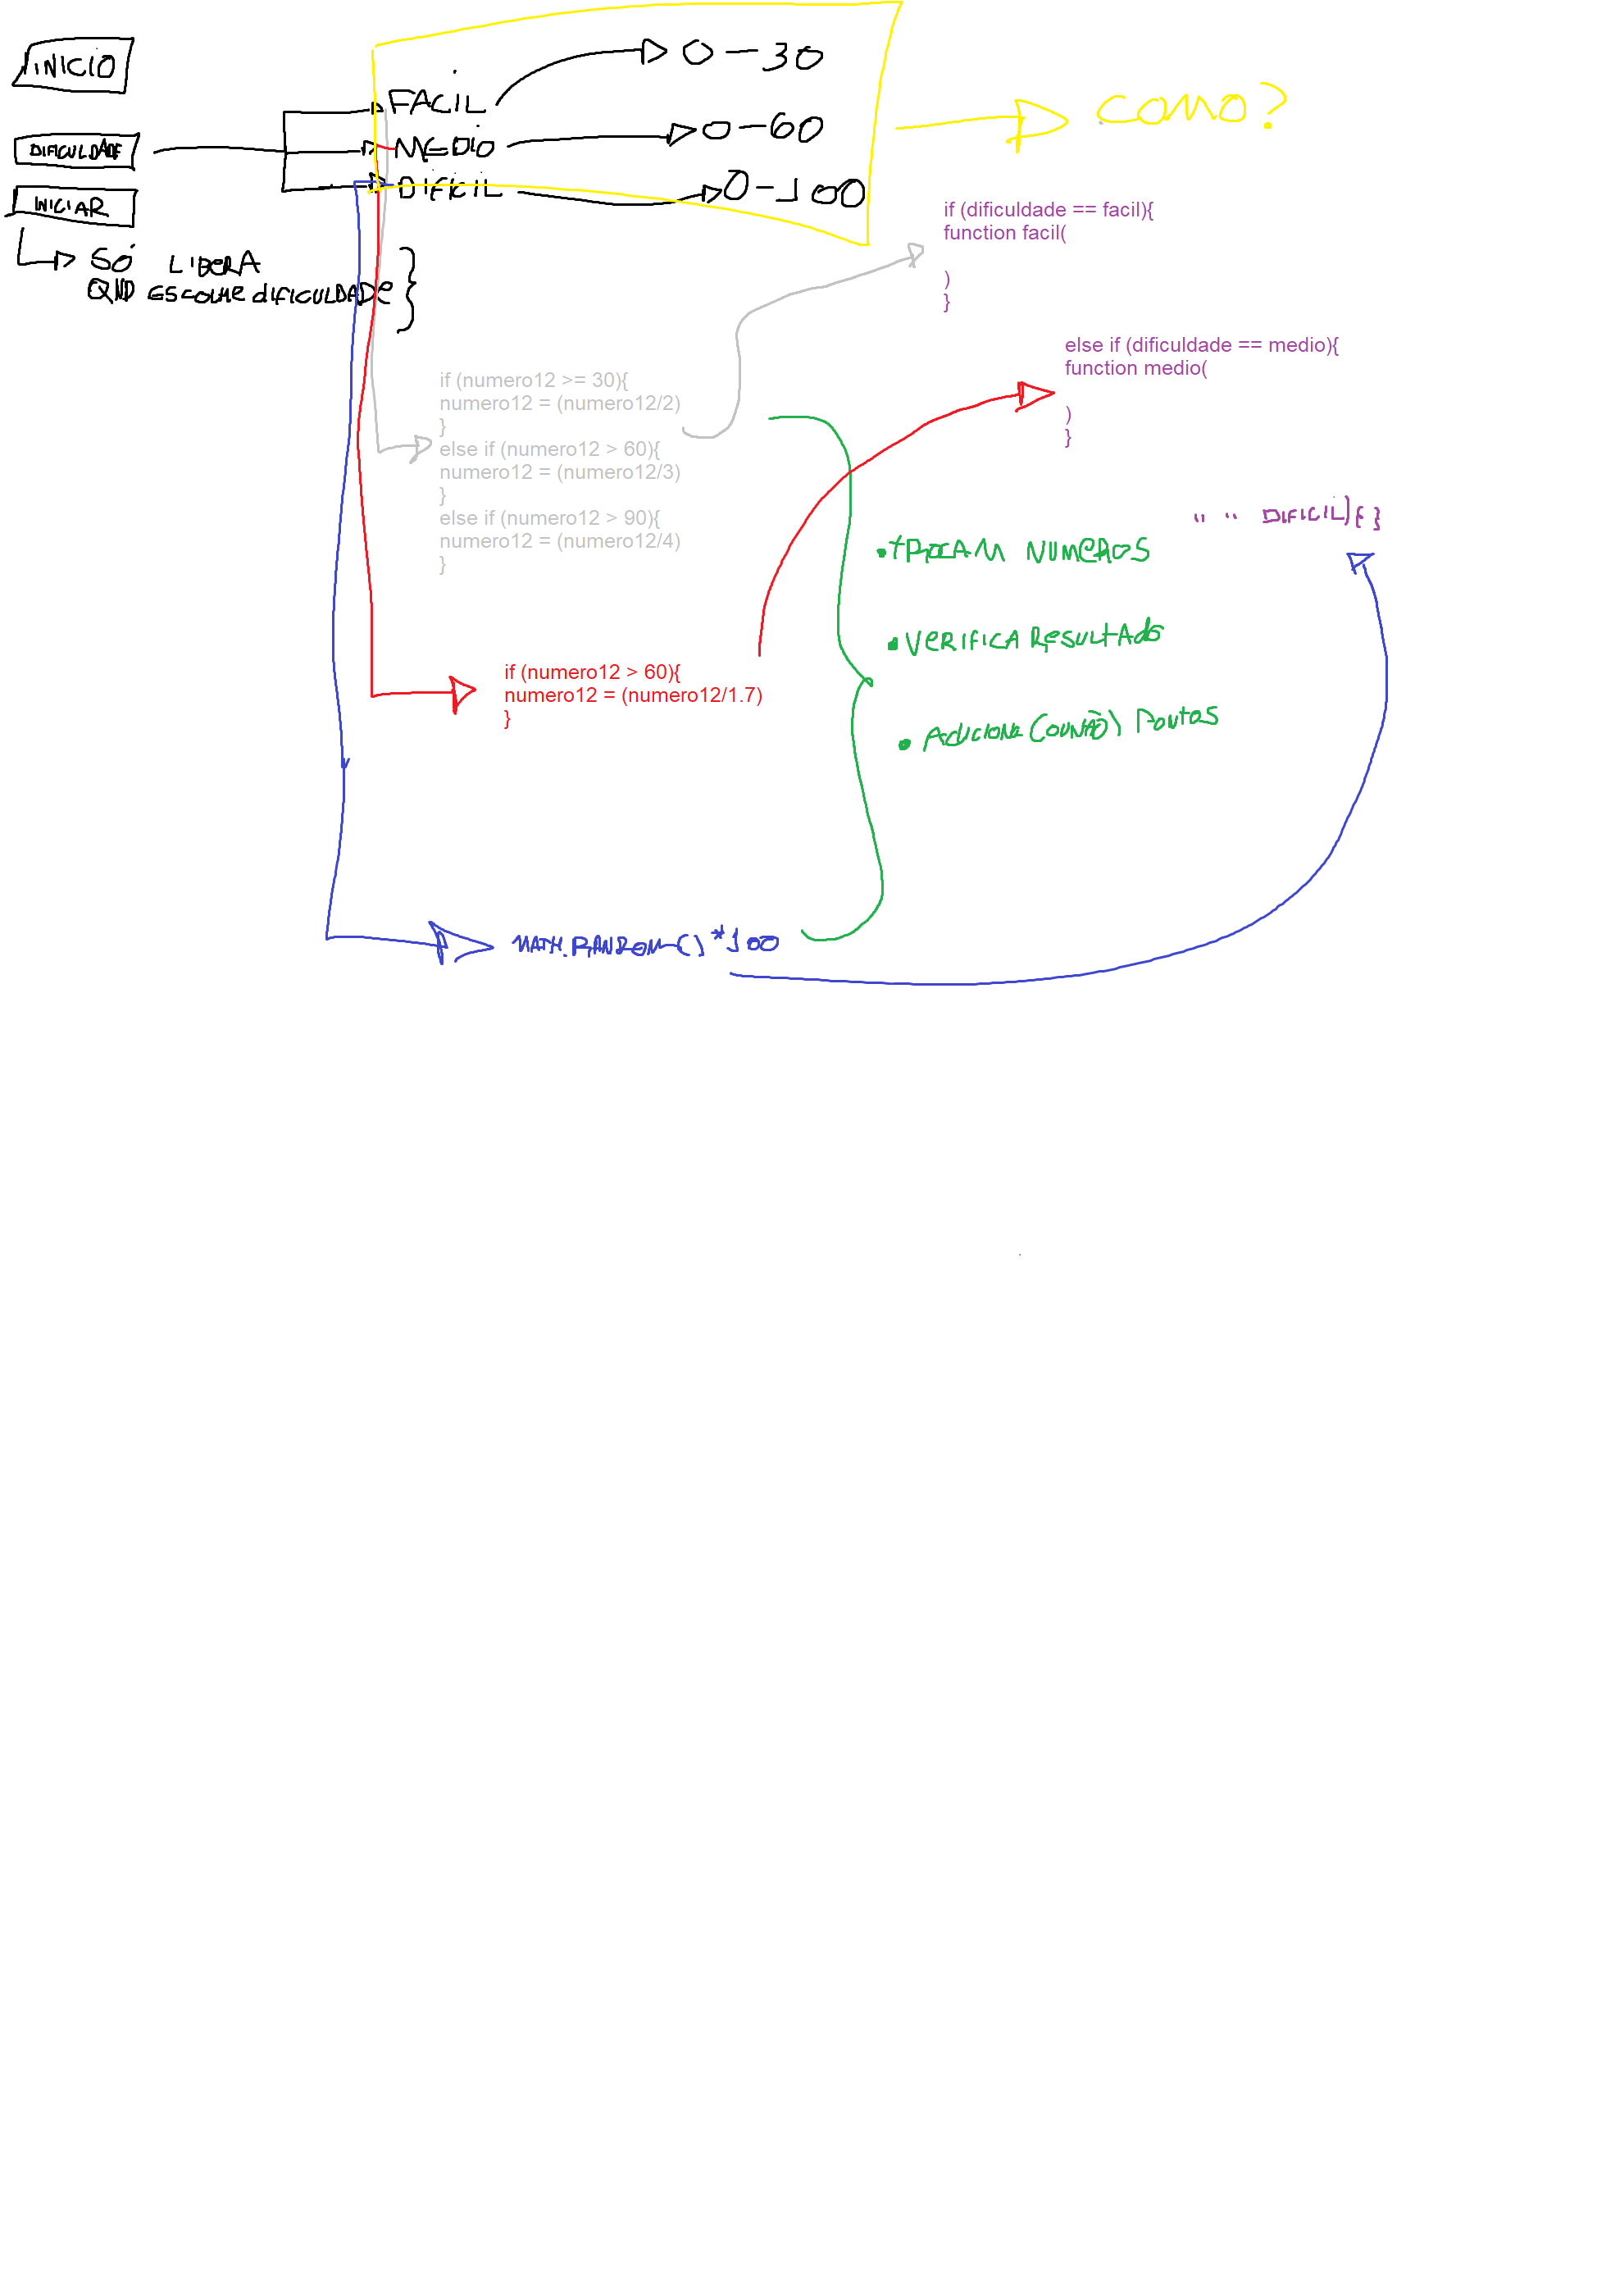 INICIO
DIFICULDADE
INICIAR
SÓ LIBERA
QND ESCOLHE DIFICULDADE
FACIL
0-30
MEDIO
0-60
DIFICIL
0-100
COMO?
if (dificuldade == facil){
function facil(
)
}
else if (dificuldade == medio){
function medio(
)
}
" " DIFICIL){}
if (numero12 >= 30){
numero12 = (numero12/2)
}
else if (numero12 > 60){
numero12 = (numero12/3)
}
else if (numero12 > 90){
numero12 = (numero12/4)
}
•TROCAM NUMEROS
•VERIFICA RESULTADO
•ADICIONA (OU NÃO) PONTOS
if (numero12 > 60){
numero12 = (numero12/1.7)
}
MATH.RANDOM()*100